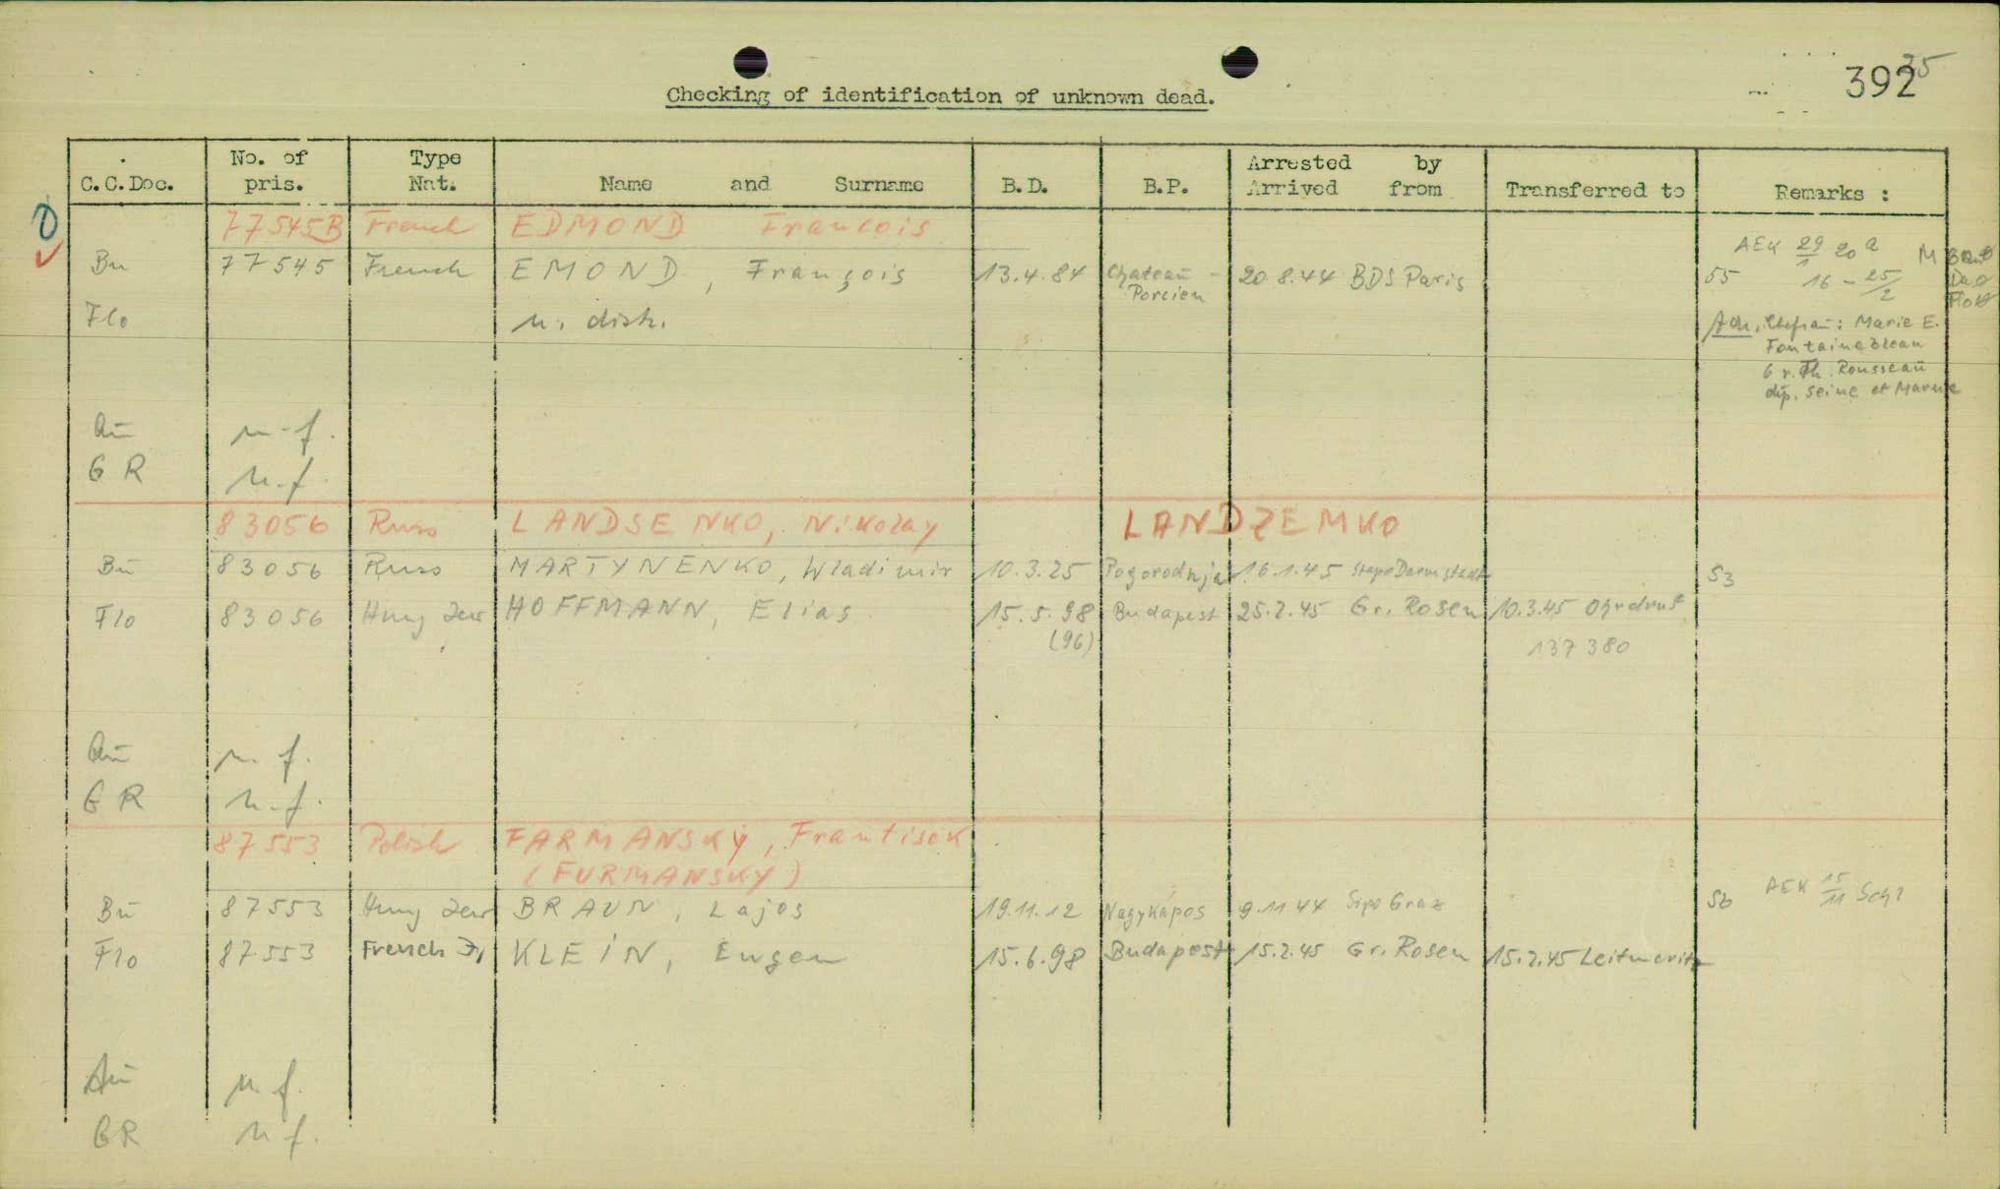 392
35
Checking of identification of unknown dead.
C.C.Doc. No. of pris. Type Nat. Name and Surname B.D. B.P. Arrested by Arrived from Transferred to Remarks :
77545B French EDMOND Francois
Bu 77545 French EMOND, François 13.4.84 Chateau-Porcien 20.8.44 BDS Paris 55 AEK 29/1 20 a 16 - 25/2 M
Flo n. dish. Marie E.
Fontainebleau
6 r. Th. Rousseau
dép. Seine et Marne
Au n.f.
GR n.f.
83056 Russ LANDSENKO, Nikolay LANDZEMKO
Bu 83056 Russ MARTYNENKO, Wladimir 10.3.25 Pogorodnja 16.1.45 Stapo Darmstadt 53
Flo 83056 Hung Jew HOFFMANN, Elias 15.5.98 Budapest 25.2.45 Gr. Rosen 10.3.45 Ohrdruf
(96) 137380
Au n.f.
GR n.f.
87553 Polish FARMANSKY, Frantisek
(FURMANSKY)
Bu 87553 Hung Jew BRAUN, Lajos 19.11.12 Nagykapos 9.11.44 Sipo Graz 56 AEK 15/11
Flo 87553 French KLEIN, Eugen 15.6.98 Budapest 15.2.45 Gr. Rosen 15.2.45 Leitmeritz
Au n.f.
GR n.f.